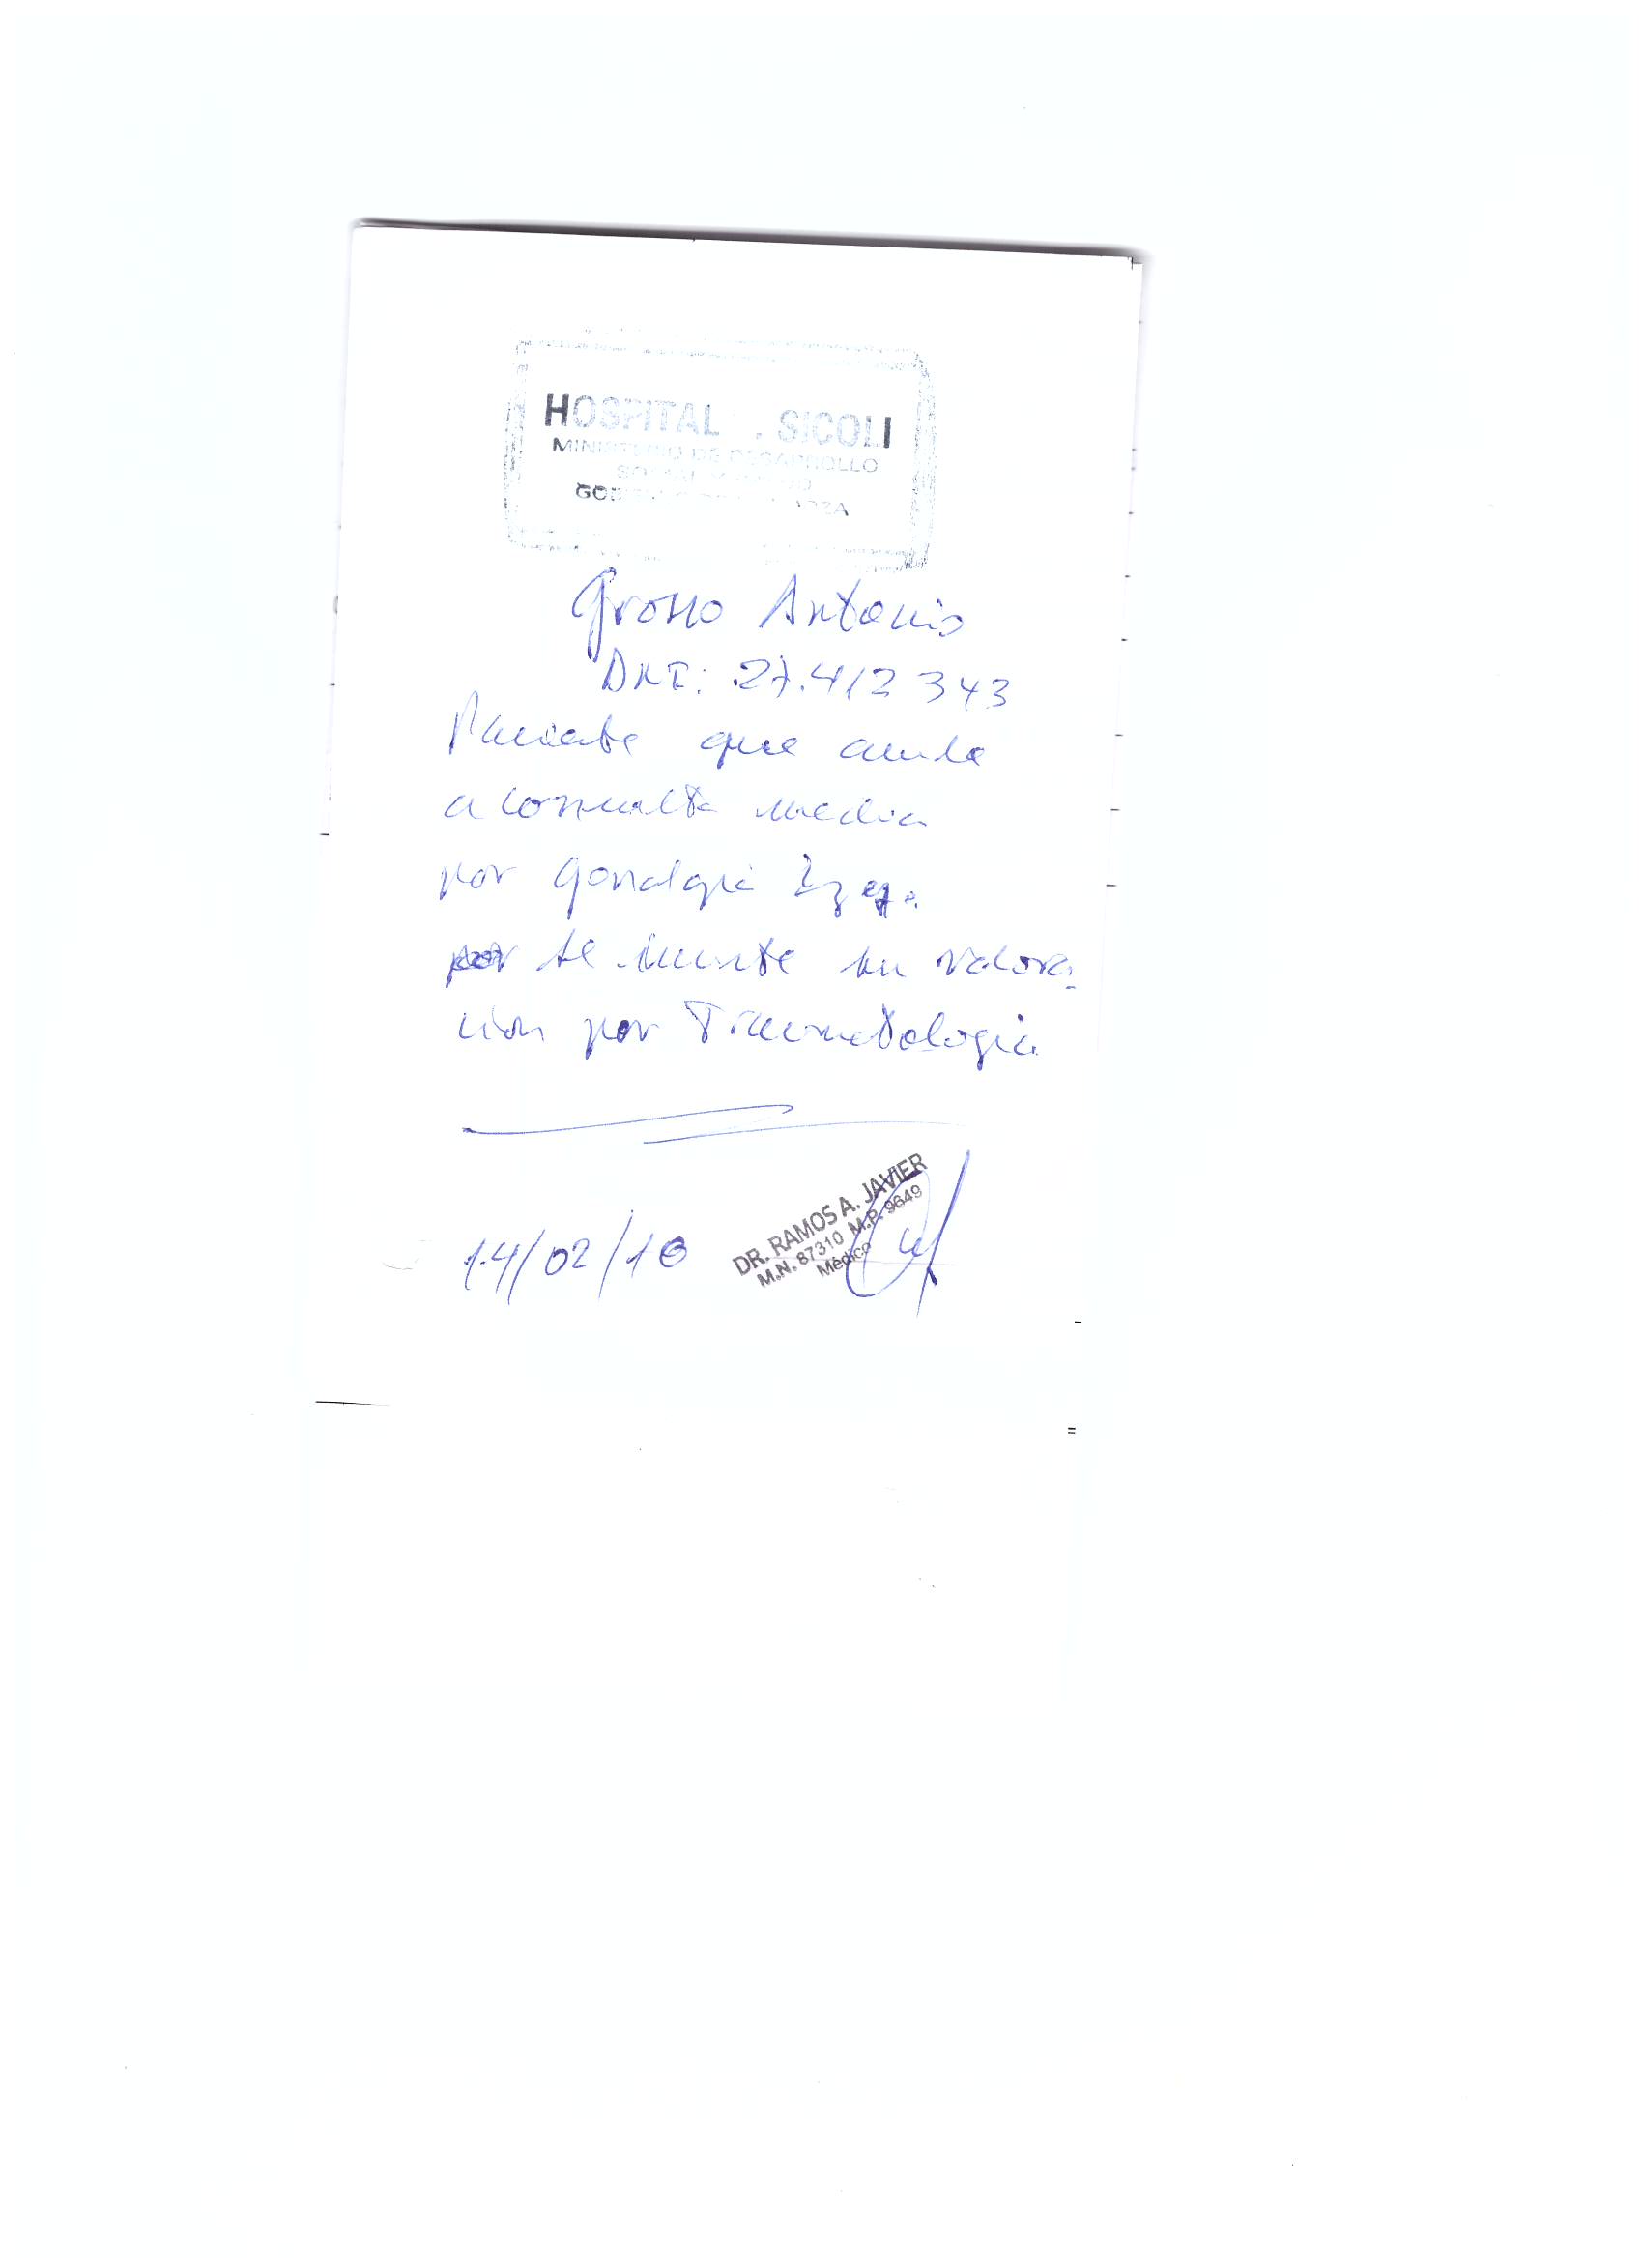 HOSPITAL . SICOLI
MINISTERIO DE DESARROLLO
Grosso Antonio
DNI: 27.412 343
Paciente que acude
a consulta medica
por Gonalgia Izq.
por se solicita su valora-
cion por Traumatologia
14/02/18
DR. RAMOS A. JAVIER
M.N. 87310 M.P. 9649
Médico